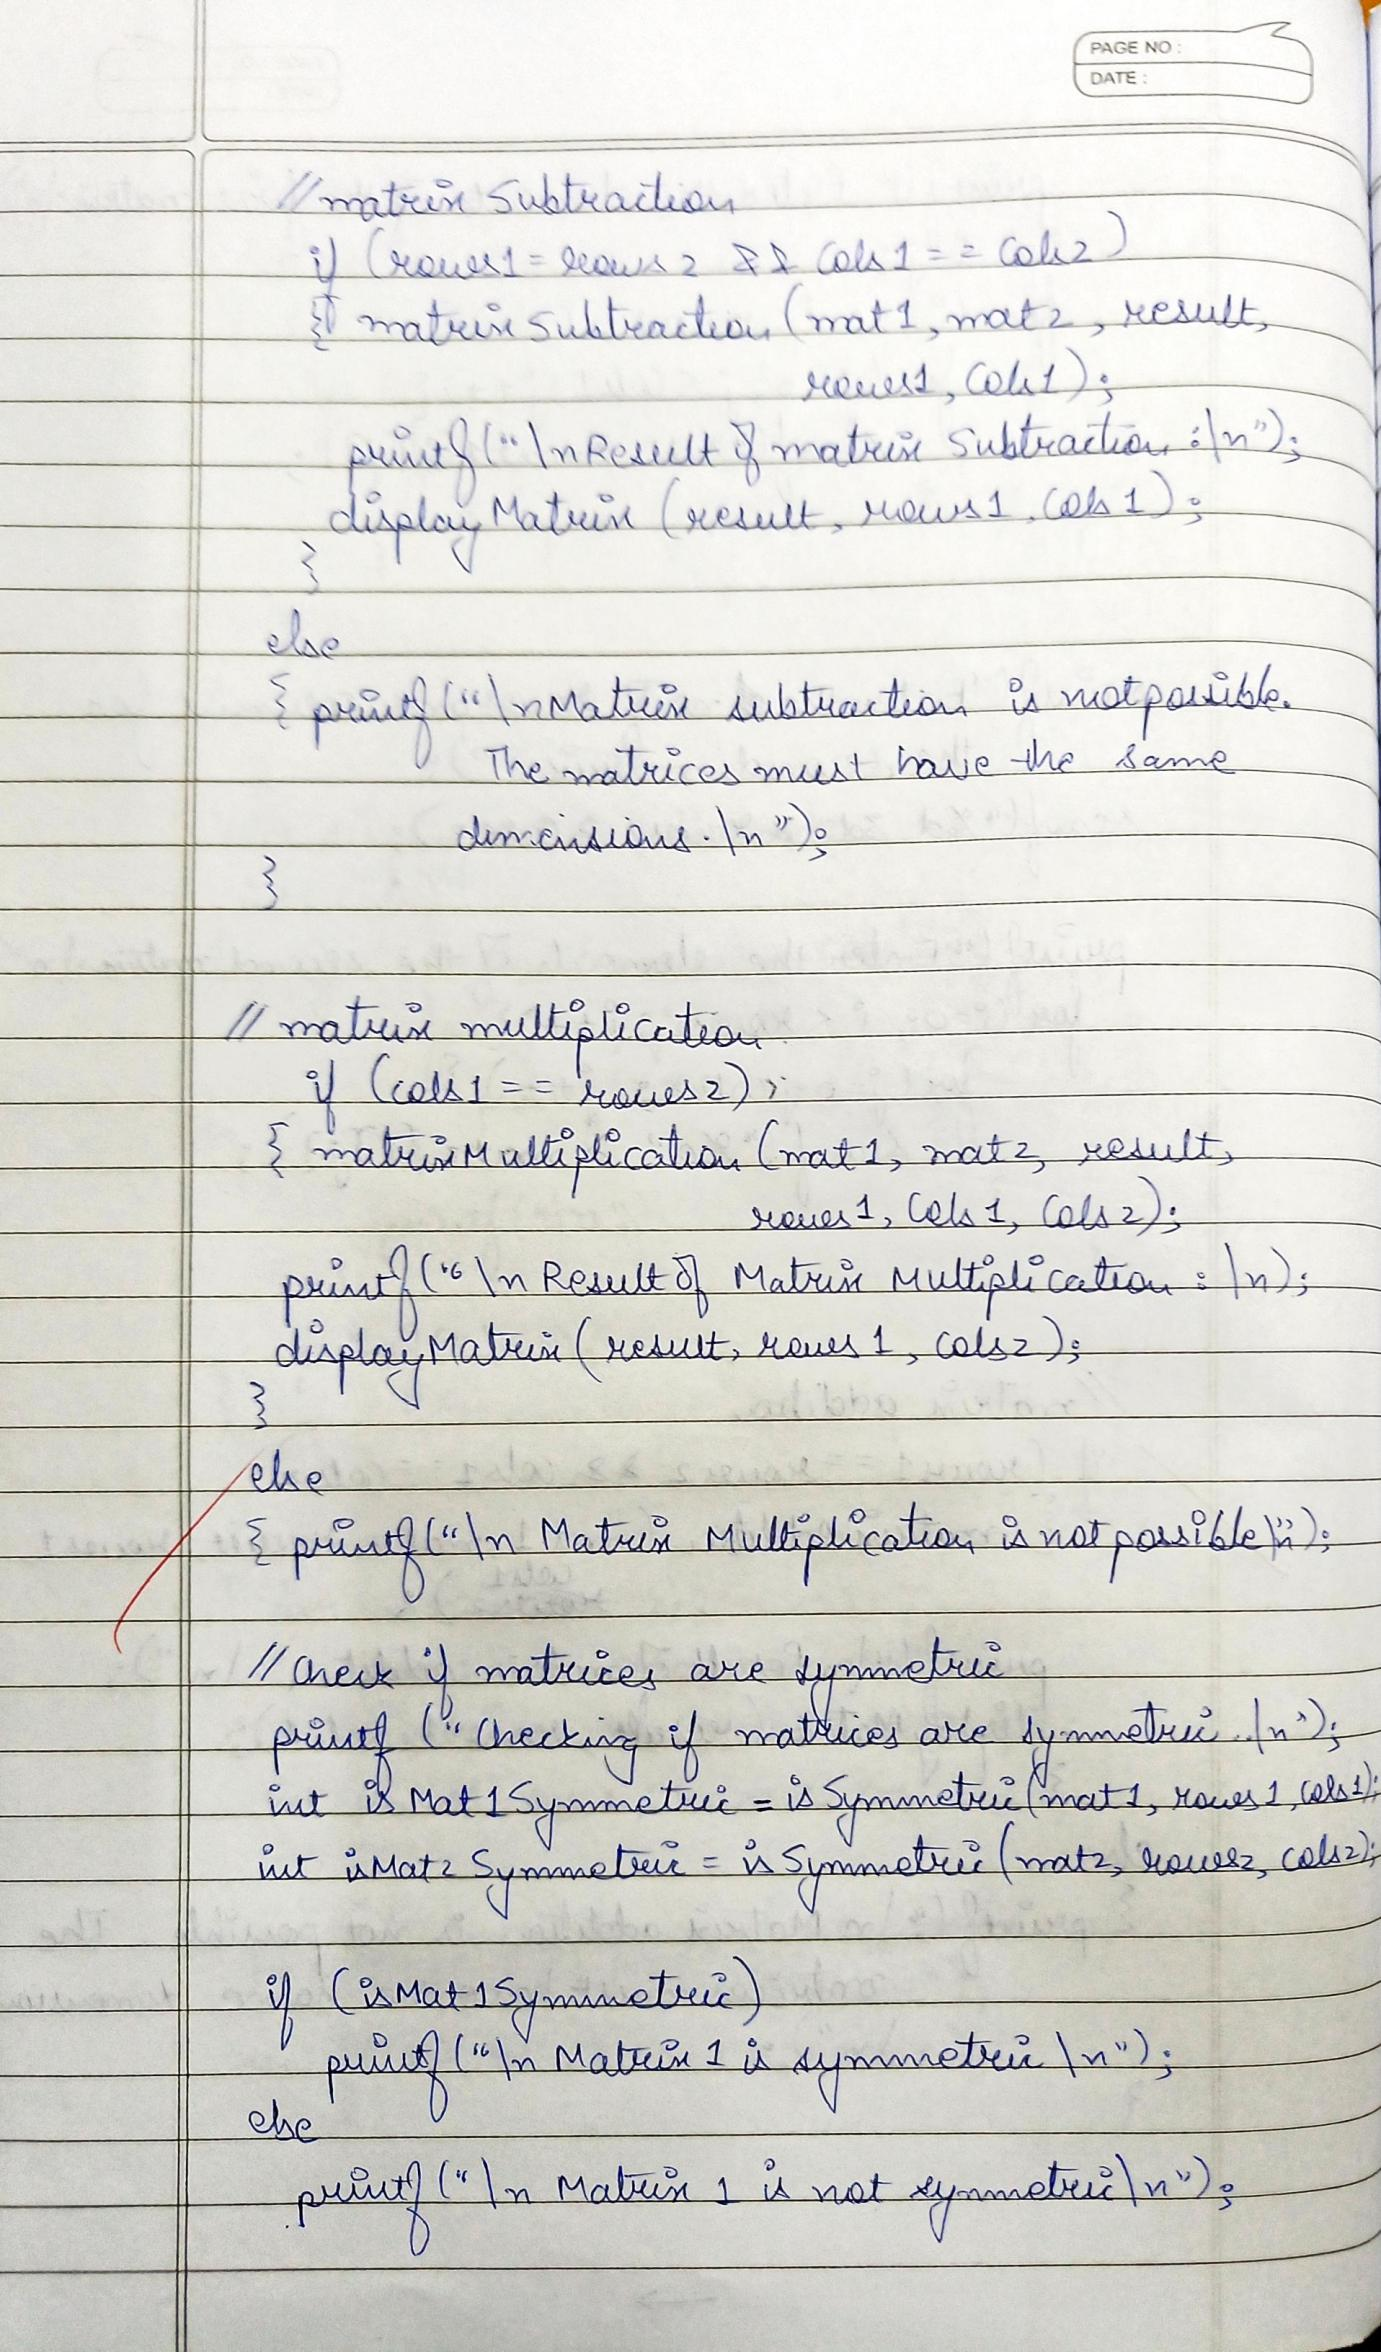 PAGE NO :
DATE :
//matrix Subtraction
if (rows1 = rows2 && Cols1 == Cols2)
{ matrixSubtraction (mat1, mat2, result,
rows1, Cols1);
printf("\nResult of matrix Subtraction :\n");
displayMatrix (result, rows1, Cols1);
}
else
{ printf("\nMatrix subtraction is not possible.
The matrices must have the same
dimensions.\n");
}
// matrix multiplication
if (cols1 == rows2)
{ matrixMultiplication (mat1, mat2, result,
rows1, Cols1, Cols2);
printf("\n Result of Matrix Multiplication : \n);
displayMatrix (result, rows1, Cols2);
}
else
{ printf("\n Matrix Multiplication is not possible\n");
//Check if matrices are symmetric
printf ("Checking if matrices are symmetric..\n");
int isMat1Symmetric = isSymmetric(mat1, rows1, Cols1);
int isMat2Symmetric = isSymmetric(mat2, rows2, Cols2);
if (isMat1Symmetric)
printf("\n Matrix 1 is symmetric \n");
else
printf("\n Matrix 1 is not symmetric\n");